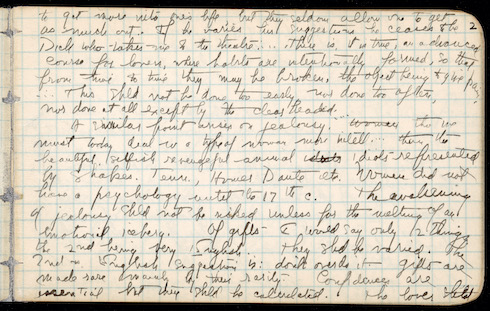 to get more into ones life but they seldom allow one to get
as much out. If he varies first suggestions he ceases to be 2
Dick who takes me to the theatre.... There is, it is true, an advanced
course for lovers, where habits are intentionally formed, so that
from time to time they may be broken, the object being to give pain
... This shld not be done too early nor done too often,
nor done at all except by the clear headed.
A similar point arises on jealousy... Women tho we
must today deal in a type of woman more intell... than the
beautiful, selfish revengeful animal idiots represented
by Shakes. Tenn, Homer Dante etc. Women did not
have a psychology until the 17th c. The awakening
of jealousy shld not be risked unless for the melting of an
emotional iceberg. Of gifts I would say only 2 things
the 2nd being very English. They shld be varied. The
2nd English suggestion is: don't overdo it gifts are
made rare by their rarity. Confidences are
essential but they shld be calculated. The lover